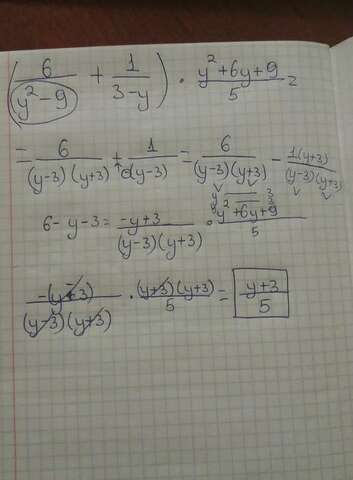 (6/(y²-9) + 1/(3-y)) · (y²+6y+9)/5 =
= 6/((y-3)(y+3)) + 1/(-(y-3)) = 6/((y-3)(y+3)) - 1(y+3)/((y-3)(y+3))
6-y-3 = (-y+3)/((y-3)(y+3)) · (y²+6y+9)/5
-(y+3)/((y-3)(y+3)) · (y+3)(y+3)/5 = (y+3)/5